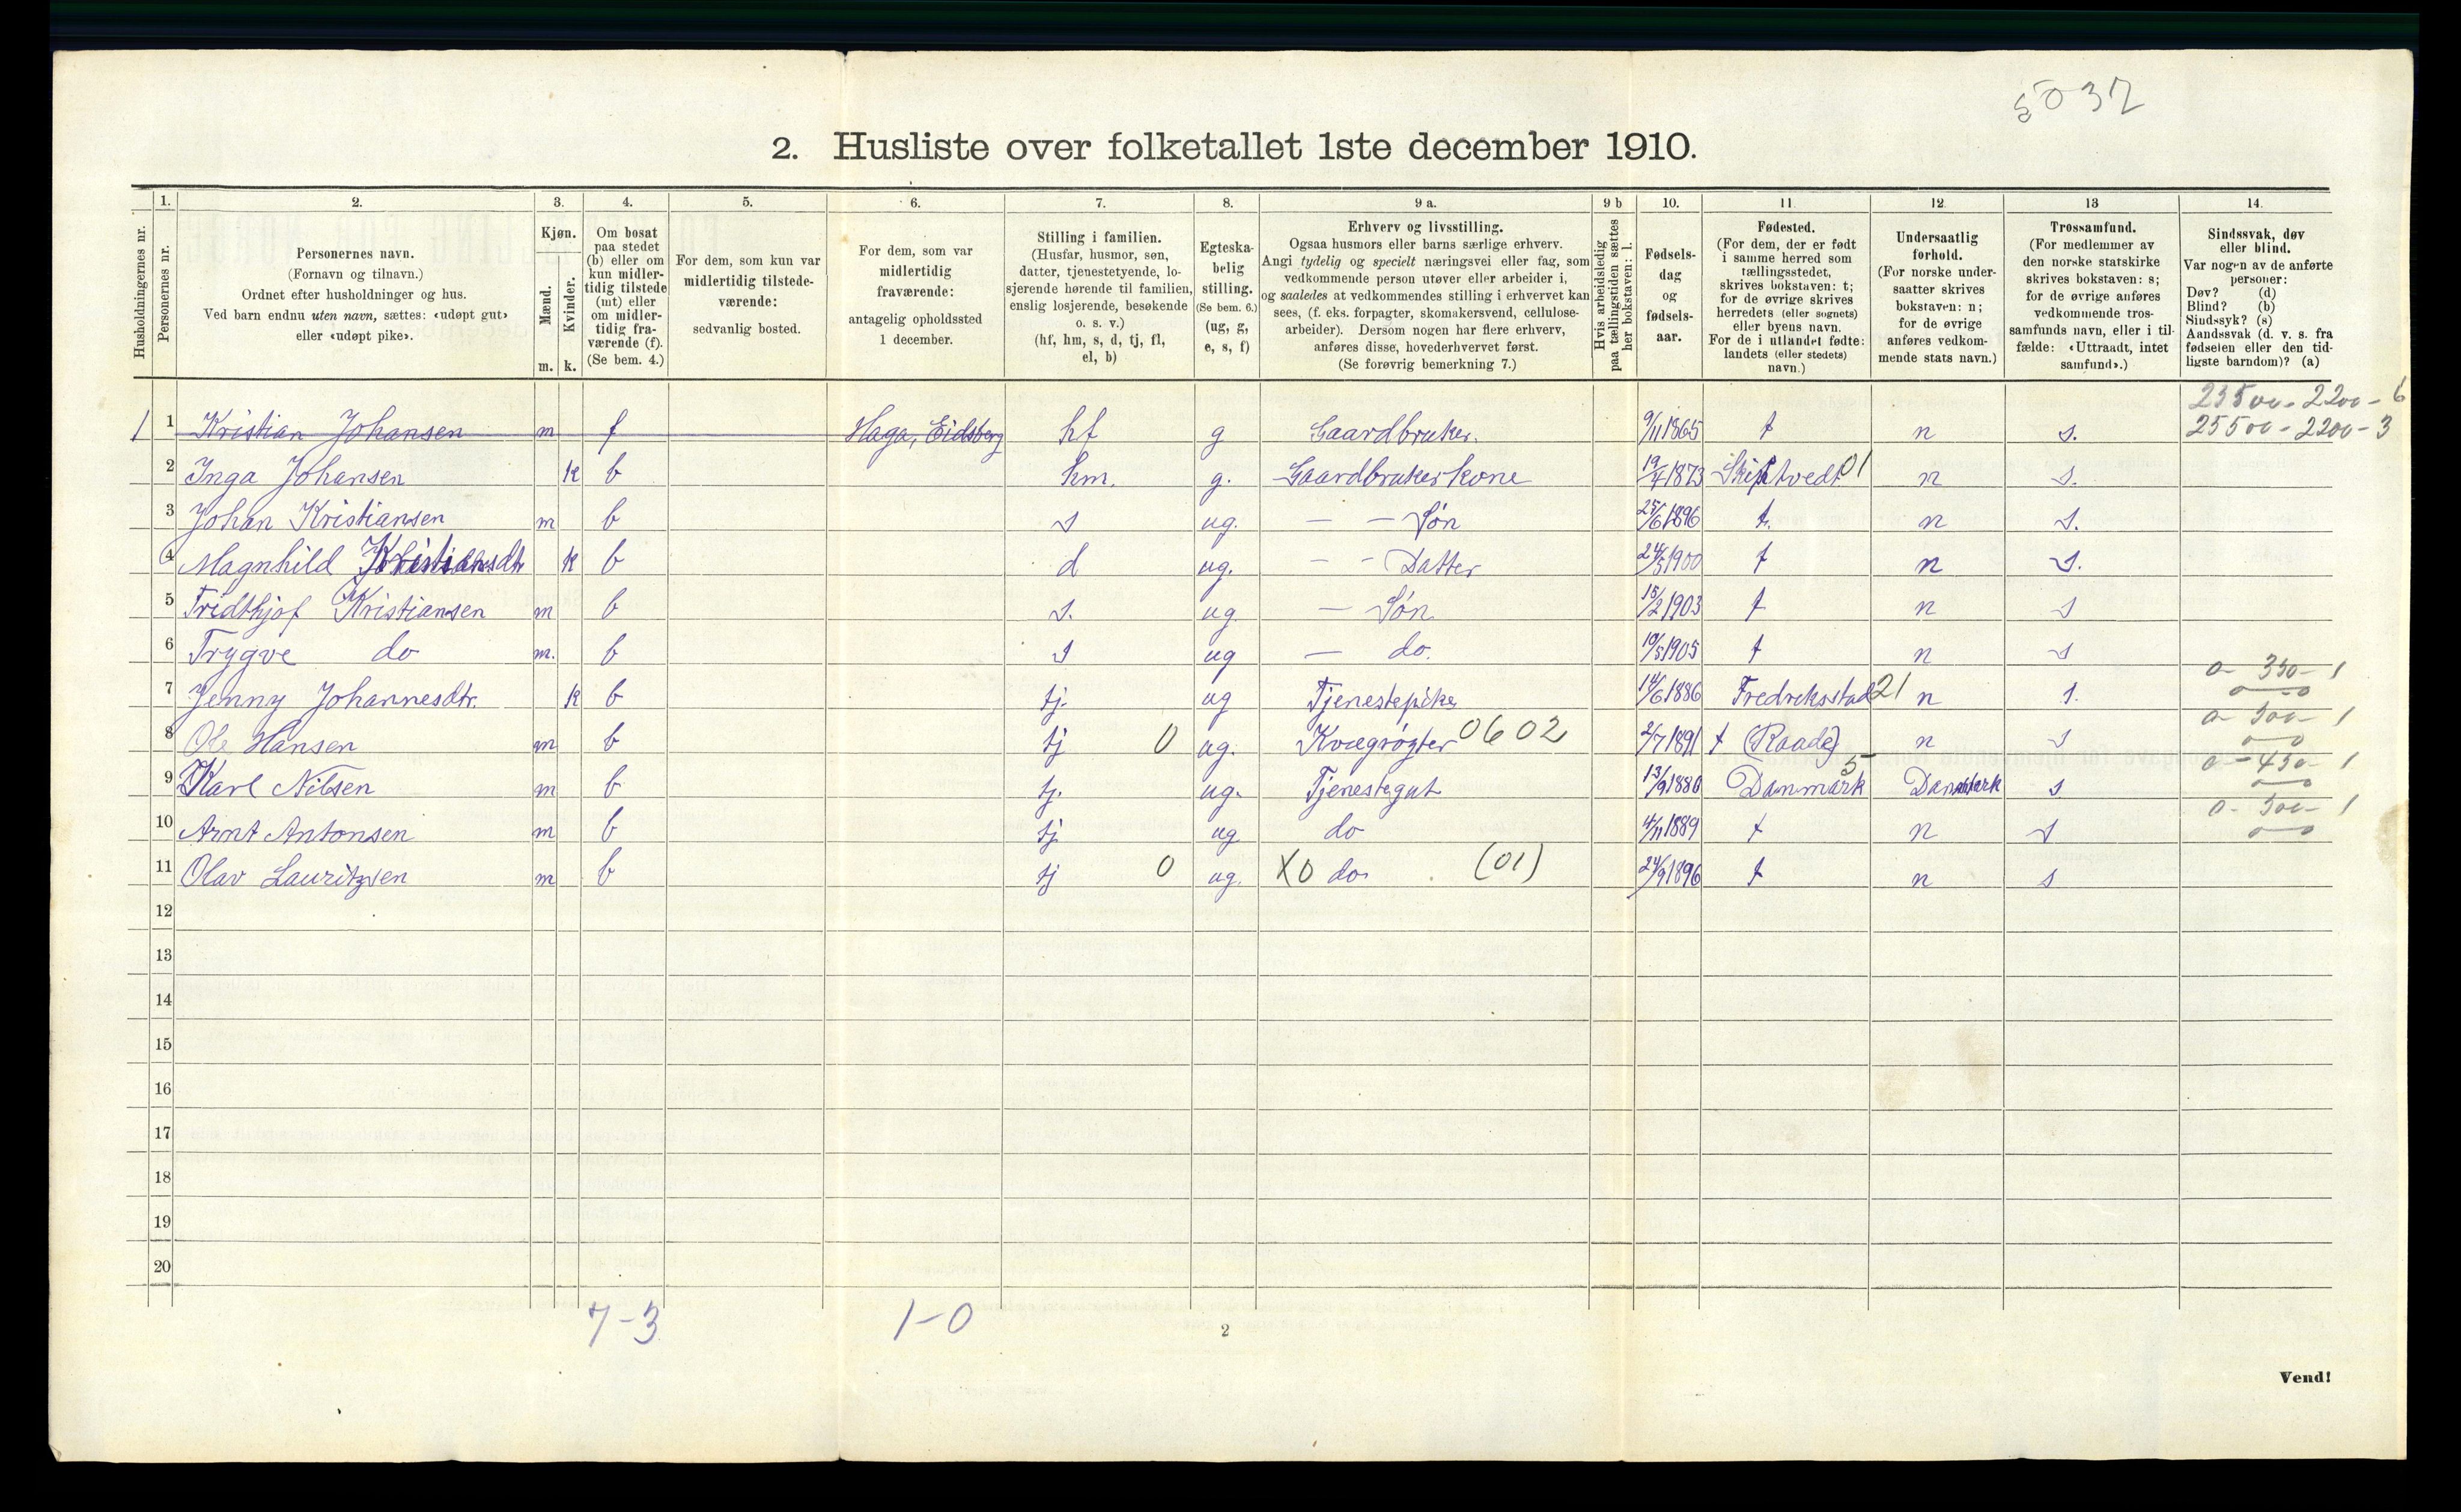 5032
2. Husliste over folketallet 1ste december 1910.
Husholdningernes nr.
1. Personernes nr.
2. Personernes navn.
(Fornavn og tilnavn.)
Ordnet efter husholdninger og hus.
Ved barn endnu uten navn, sættes: «udøpt gut»
eller «udøpt pike».
3. Kjøn.
Mænd. m.
Kvinder. k.
4. Om bosat
paa stedet
(b) eller om
kun midler-
tidig tilstede
(mt) eller
om midler-
tidig fra-
værende (f).
(Se bem. 4.)
5. For dem, som kun var
midlertidig tilstede-
værende:
sedvanlig bosted.
6. For dem, som var
midlertidig
fraværende:
antagelig opholdssted
1 december.
7. Stilling i familien.
(Husfar, husmor, søn,
datter, tjenestetyende, lo-
sjerende hørende til familien,
enslig losjerende, besøkende
o. s. v.)
(hf, hm, s, d, tj, fl,
el, b)
8. Egteska-
belig
stilling.
(Se bem. 6.)
(ug, g,
e, s, f)
9 a. Erhverv og livsstilling.
Ogsaa husmors eller barns særlige erhverv.
Angi tydelig og specielt næringsvei eller fag, som
vedkommende person utøver eller arbeider i,
og saaledes at vedkommendes stilling i erhvervet kan
sees, (f. eks. forpagter, skomakersvend, cellulose-
arbeider). Dersom nogen har flere erhverv,
anføres disse, hovederhvervet først.
(Se forøvrig bemerkning 7.)
9 b Hvis arbeidsledig
paa tællingstiden sættes
her bokstaven: l.
10. Fødsels-
dag
og
fødsels-
aar.
11. Fødested.
(For dem, der er født
i samme herred som
tællingsstedet,
skrives bokstaven: t;
for de øvrige skrives
herredets (eller sognets)
eller byens navn.
For de i utlandet fødte:
landets (eller stedets)
navn.)
12. Undersaatlig
forhold.
(For norske under-
saatter skrives
bokstaven: n;
for de øvrige
anføres vedkom-
mende stats navn.)
13 Trossamfund.
(For medlemmer av
den norske statskirke
skrives bokstaven: s;
for de øvrige anføres
vedkommende tros-
samfunds navn, eller i til-
fælde: «Uttraadt, intet
samfund».)
14. Sindssvak, døv
eller blind.
Var nogen av de anførte
personer:
Døv? (d)
Blind? (b)
Sindssyk? (s)
Aandssvak (d. v. s. fra
fødselen eller den tid-
ligste barndom)? (a)
23500 - 2200 - 6
1 1 Kristian Johansen m f Haga, Eidsberg hf g Gaardbruker. 9/11 1865 t n s. 25500 - 2200 - 3
2 Inga Johansen k b hm. g. Gaardbrukerkone 19/4 1873 Skiptvedt 01 n s.
3 Johan Kristiansen m b s ug. — — Søn 25/6 1896 t. n s.
4 Magnhild Kristiansdtr k b d ug. — - Datter 24/5 1900 t n s.
5 Fridthjof Kristiansen m b s. ug. — Søn 15/2 1903 t n s
6 Trygve do m. b s ug — do. 10/5 1905 t n s
0 - 350 - 1
7 Jenny Johannesdtr. k b tj. ug Tjenestepike 14/6 1886 Fredriksstad 21 n s. 0—0
0 - 300 - 1
8 Ole Hansen m b tj 0 ug. Kvægrøgter 0602 2/7 1891 t (Raade) n s 0—0
5 0 - 450 - 1
9 Karl Nilsen m b tj. ug. Tjenestegut 13/9 1880 Danmark Danmark s 0—0
0 - 300 - 1
10 Arnt Antonsen m b tj ug do 4/11 1889 t n s 0—0
11 Olav Lauritzsen m b tj 0 ug. X0 do. (01) 24/9 1896 t n s
12
13
14
15
16
17
18
19
20
7-3 1-0
2
Vend!